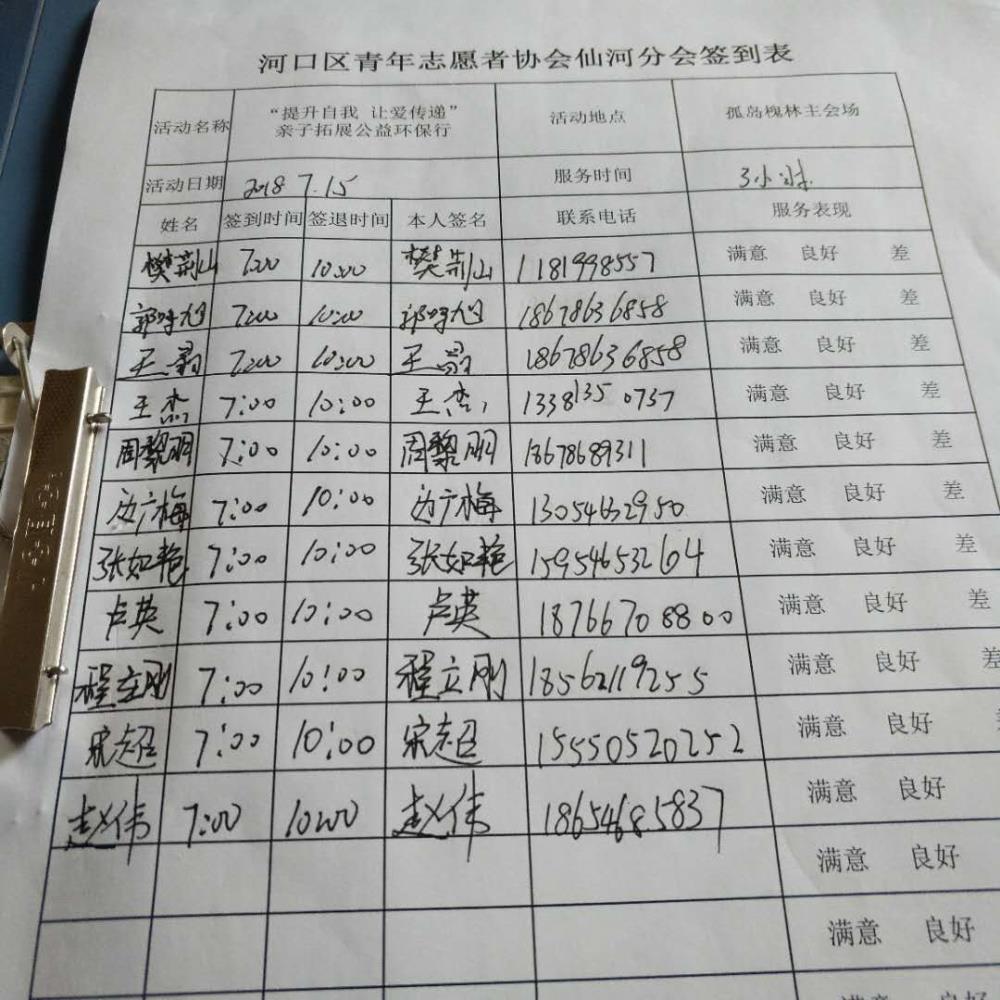 河口区青年志愿者协会仙河分会签到表
活动名称 “提升自我 让爱传递” 亲子拓展公益环保行 活动地点 孤岛槐林主会场
活动日期 2018 7.15 服务时间 3小时
姓名 签到时间 签退时间 本人签名 联系电话 服务表现
樊荆山 7:00 10:00 樊荆山 1181998557 满意 良好 差
7:00 10:00 18678636858 满意 良好 差
7:00 10:00 18678636858 满意 良好 差
王杰 7:00 10:00 王杰 13381350737 满意 良好 差
周黎明 7:00 10:00 周黎明 18678689311 满意 良好 差
边广梅 7:00 10:00 边广梅 13054632950 满意 良好 差
张如艳 7:00 10:00 张如艳 15954653264 满意 良好 差
卢英 7:00 10:00 卢英 18766708800 满意 良好 差
程立刚 7:00 10:00 程立刚 18562119255 满意 良好 差
宋志超 7:00 10:00 宋志超 15550520252 满意 良好
赵伟 7:00 10:00 赵伟 18654685837 满意 良好
满意 良好
满意 良好